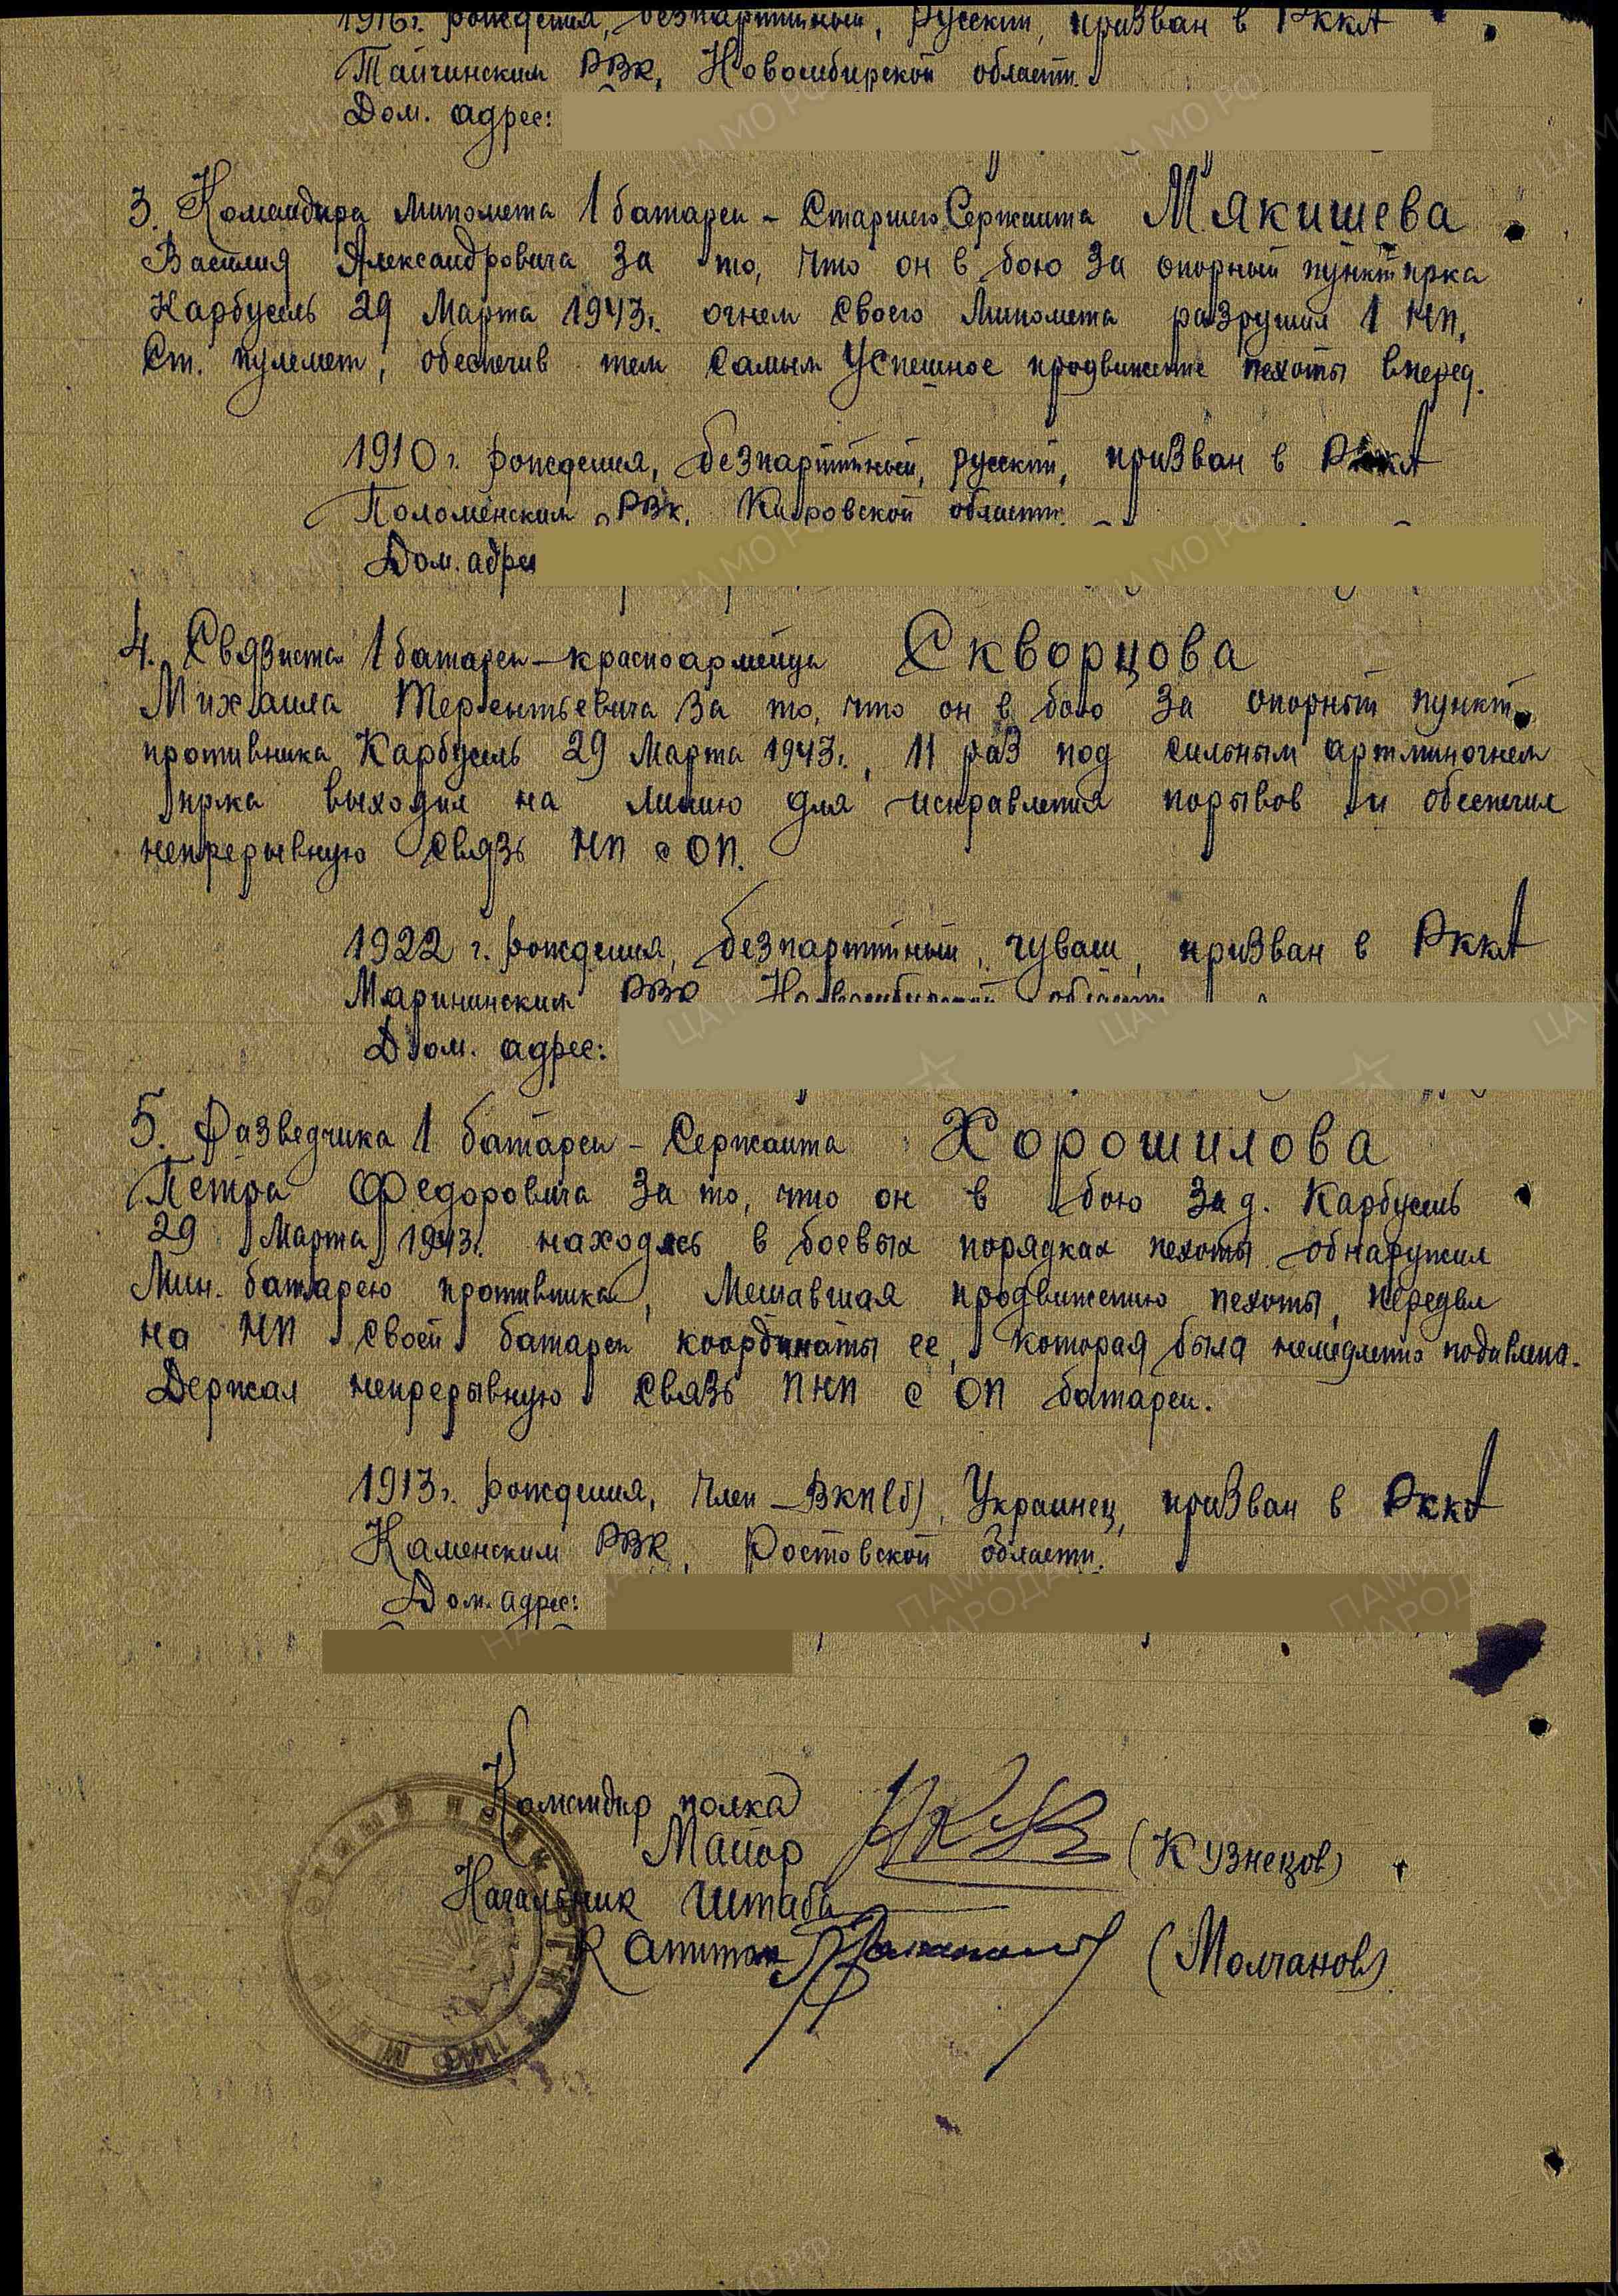 1916 г. рождения, безпартийный, русский, призван в РККА
Тайчинским РВК, Новосибирской области.
Дом. адрес:
3. Командира миномета 1 батареи – Старшего Сержанта МЯКИШЕВА
Василия Александровича за то, что он в бою за опорный пункт пр-ка
Карбусель 29 Марта 1943 г. огнем своего миномета разрушил 1 НП,
ст. пулемет, обеспечив тем самым успешное продвижение пехоты вперед.
1910 г. рождения, безпартийный, русский, призван в РККА
Поломенским РВК, Кировской области.
Дом. адрес
4. Связиста 1 батареи – красноармейца Скворцова
Михаила Терентьевича за то, что он в бою за опорный пункт
противника Карбусель 29 Марта 1943 г., 11 раз под сильным артминогнем
пр-ка выходил на линию для исправления порывов и обеспечил
непрерывную связь НП с ОП.
1922 г. рождения, безпартийный, чуваш, призван в РККА
Мариинским РВК Новосибирской области
Дом. адрес:
5. Разведчика 1 батареи – Сержанта Хорошилова
Петра Федоровича за то, что он в бою за д. Карбусель
29 Марта 1943 г. находясь в боевых порядках пехоты обнаружил
Мин. батарею противника, мешавшая продвижению пехоты, передал
на НП своей батареи координаты ее, которая была немедленно подавлена.
Держал непрерывную связь ПНП с ОП батареи.
1913 г. рождения, Член ВКП(б), Украинец, призван в РККА
Каменским РВК, Ростовской области.
Дом. адрес:
Командир полка
Майор (Кузнецов)
Начальник штаба
Капитан (Молчанов)
ЦА МО РФ
ПАМЯТЬ НАРОДА